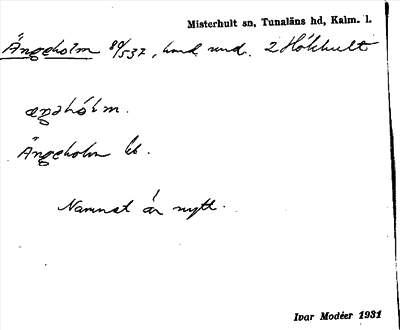 Misterhult sn, Tunaläns hd, Kalm. l.
Ängeholm 89/537, und. 2 Hökhult
Ängeholm
Namnet är nytt.
Ivar Modéer 1931